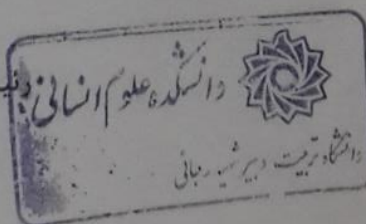 دانشکده علوم انسانی
دانشگاه تربیت دبیر شهید رجائی